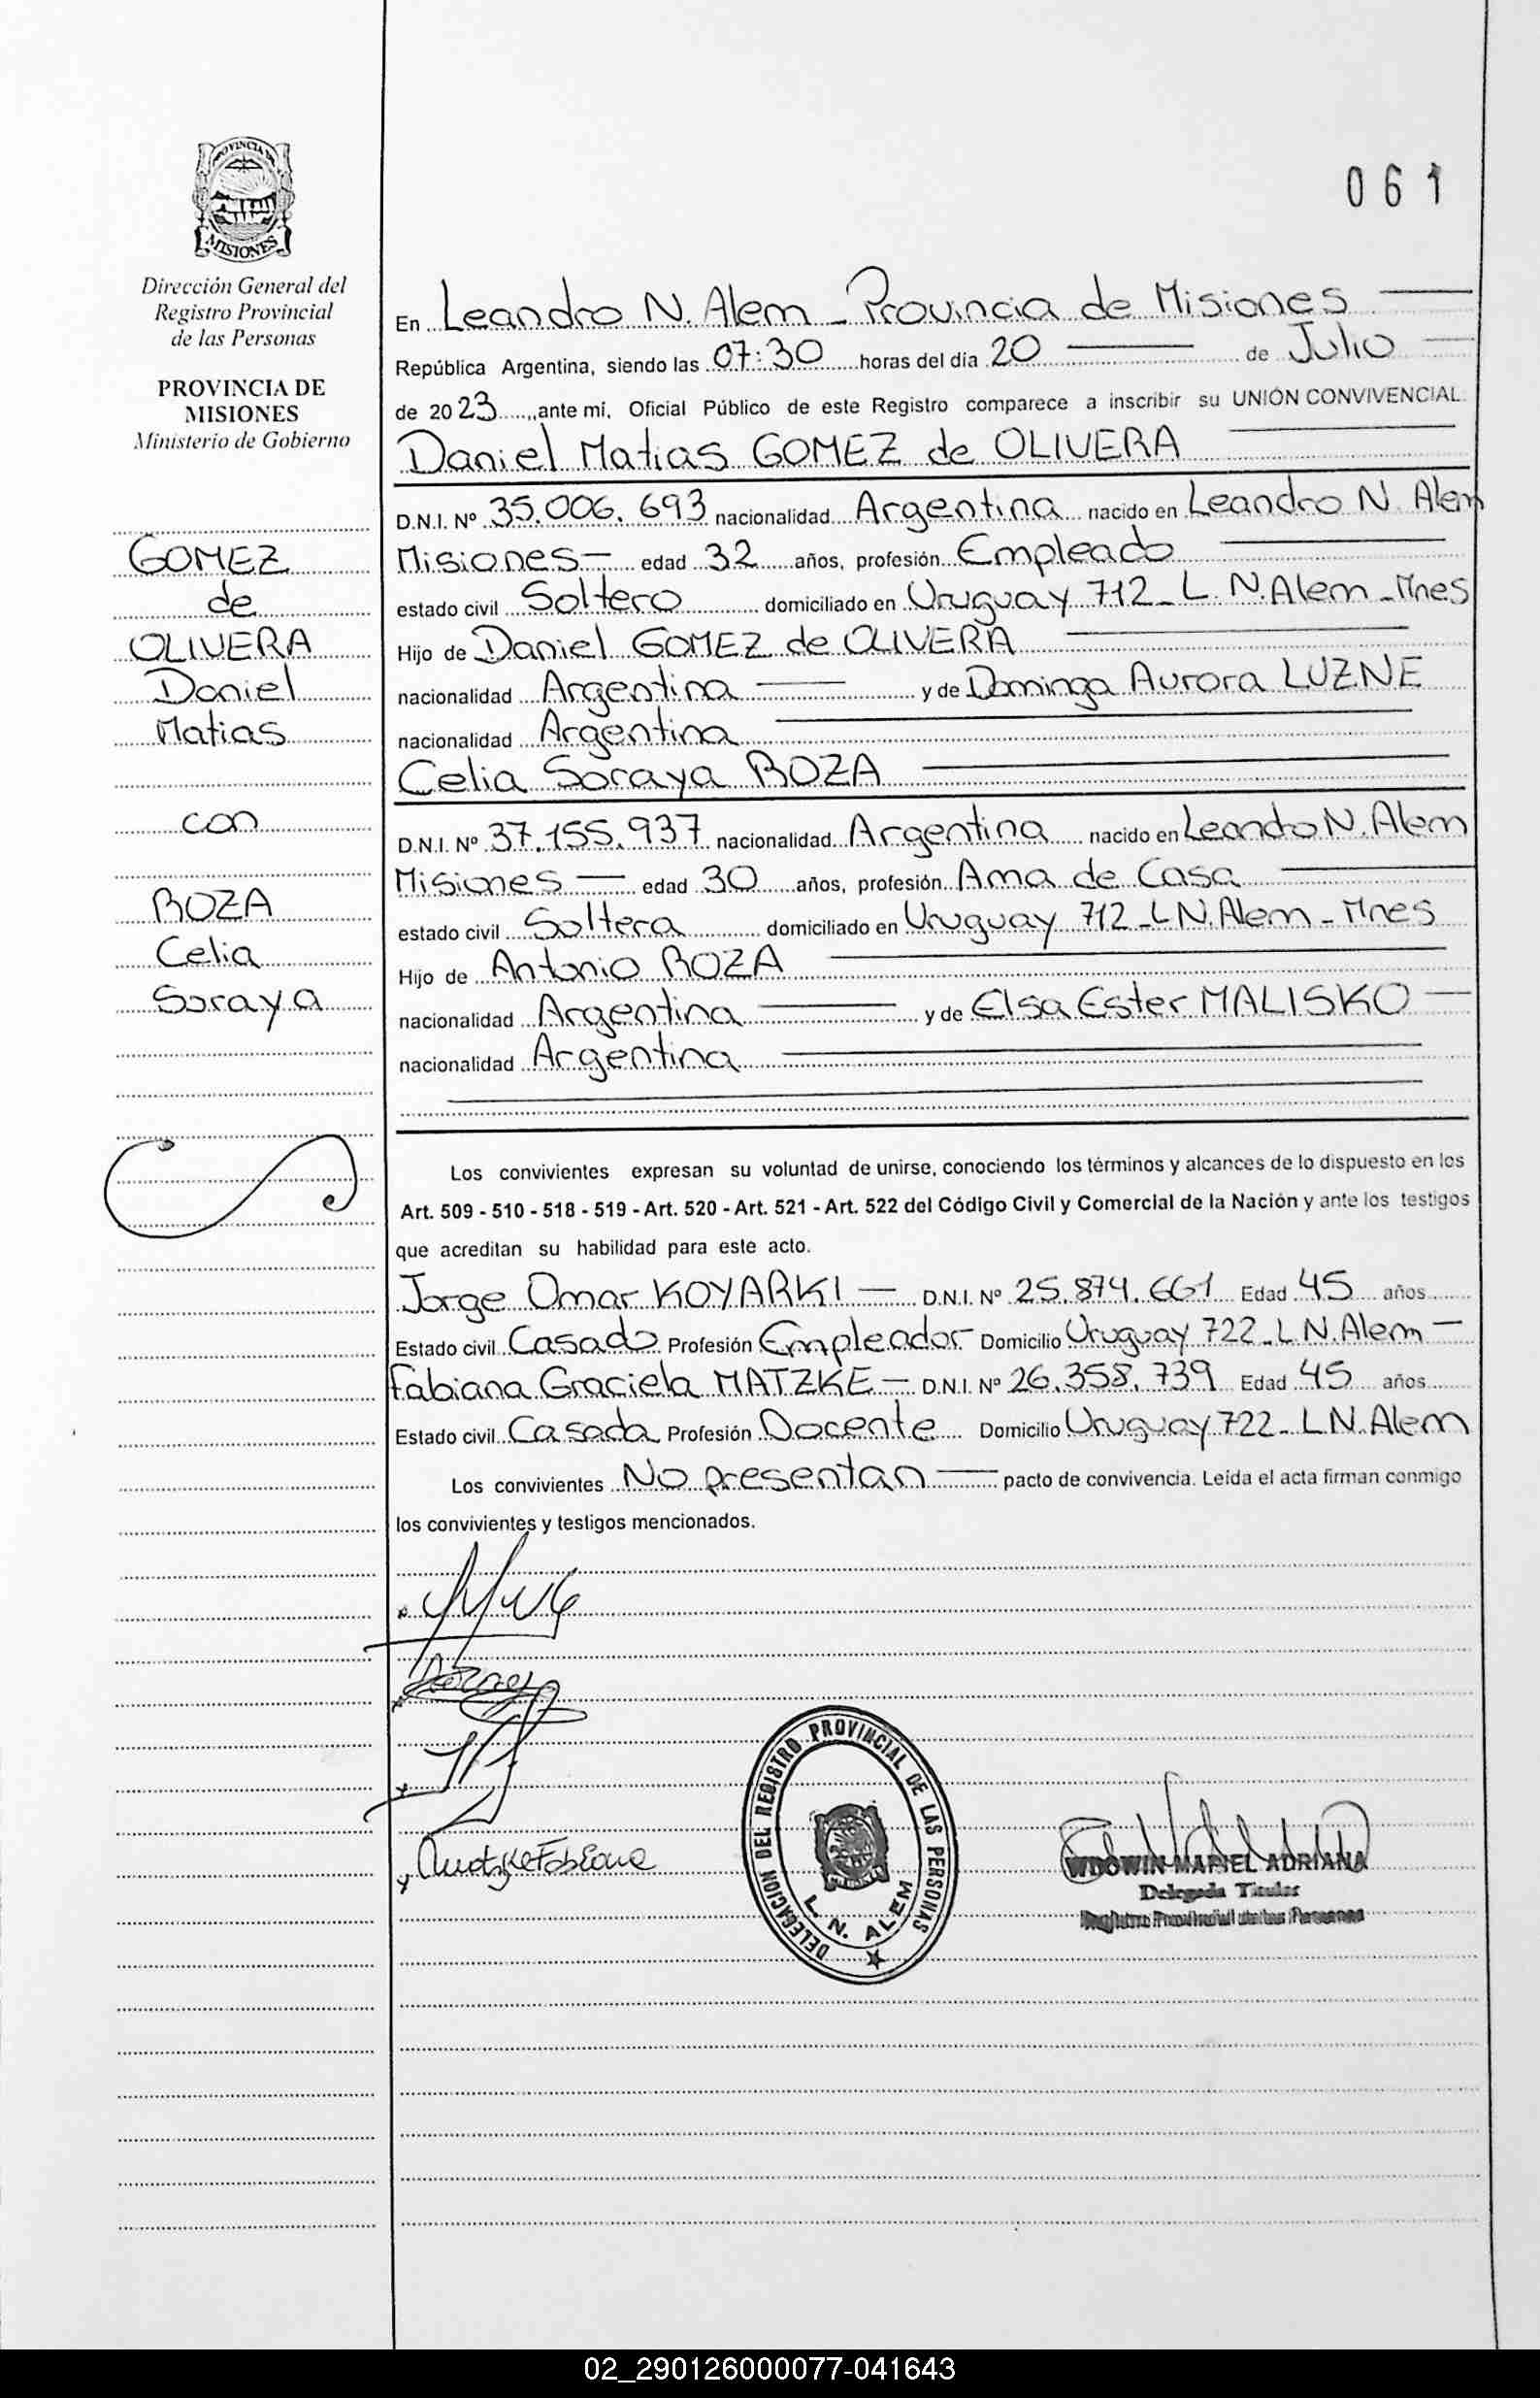 PROVINCIA DE
MISIONES
Dirección General del
Registro Provincial
de las Personas
PROVINCIA DE
MISIONES
Ministerio de Gobierno
GOMEZ
de
OLIVERA
Daniel
Matias
con
ROZA
Celia
Soraya
061
En Leandro N. Alem - Provincia de Misiones
República Argentina, siendo las 07:30 horas del día 20 de Julio
de 2023, ante mí, Oficial Público de este Registro comparece a inscribir su UNIÓN CONVIVENCIAL
Daniel Matias GOMEZ de OLIVERA
D.N.I. Nº 35.006.693 nacionalidad Argentina nacido en Leandro N. Alem
Misiones edad 32 años, profesión Empleado
estado civil Soltero domiciliado en Uruguay 712_L.N.Alem_Mnes
Hijo de Daniel GOMEZ de OLIVERA
nacionalidad Argentina y de Dominga Aurora LUZNE
nacionalidad Argentina
Celia Soraya ROZA
D.N.I. Nº 37.155.937 nacionalidad Argentina nacido en Leandro N. Alem
Misiones edad 30 años, profesión Ama de Casa
estado civil Soltera domiciliado en Uruguay 712_LN.Alem_Mnes
Hijo de Antonio ROZA
nacionalidad Argentina y de Elsa Ester MALISKO
nacionalidad Argentina
Los convivientes expresan su voluntad de unirse, conociendo los términos y alcances de lo dispuesto en los
Art. 509 - 510 - 518 - 519 - Art. 520 - Art. 521 - Art. 522 del Código Civil y Comercial de la Nación y ante los testigos
que acreditan su habilidad para este acto.
Jorge Omar KOYARKI D.N.I. Nº 25.874.661 Edad 45 años
Estado civil Casado Profesión Empleador Domicilio Uruguay 722_L N.Alem
Fabiana Graciela MATZKE D.N.I. Nº 26.358.739 Edad 45 años
Estado civil Casada Profesión Docente Domicilio Uruguay 722_LN.Alem
Los convivientes No presentan pacto de convivencia. Leída el acta firman conmigo
los convivientes y testigos mencionados.
Matzke Fabiana
DELEGACION DEL REGISTRO PROVINCIAL DE LAS PERSONAS
L. N. ALEM
WDOWIN MARIEL ADRIANA
Delegada Titular
Registro Provincial de las Personas
02_290126000077-041643